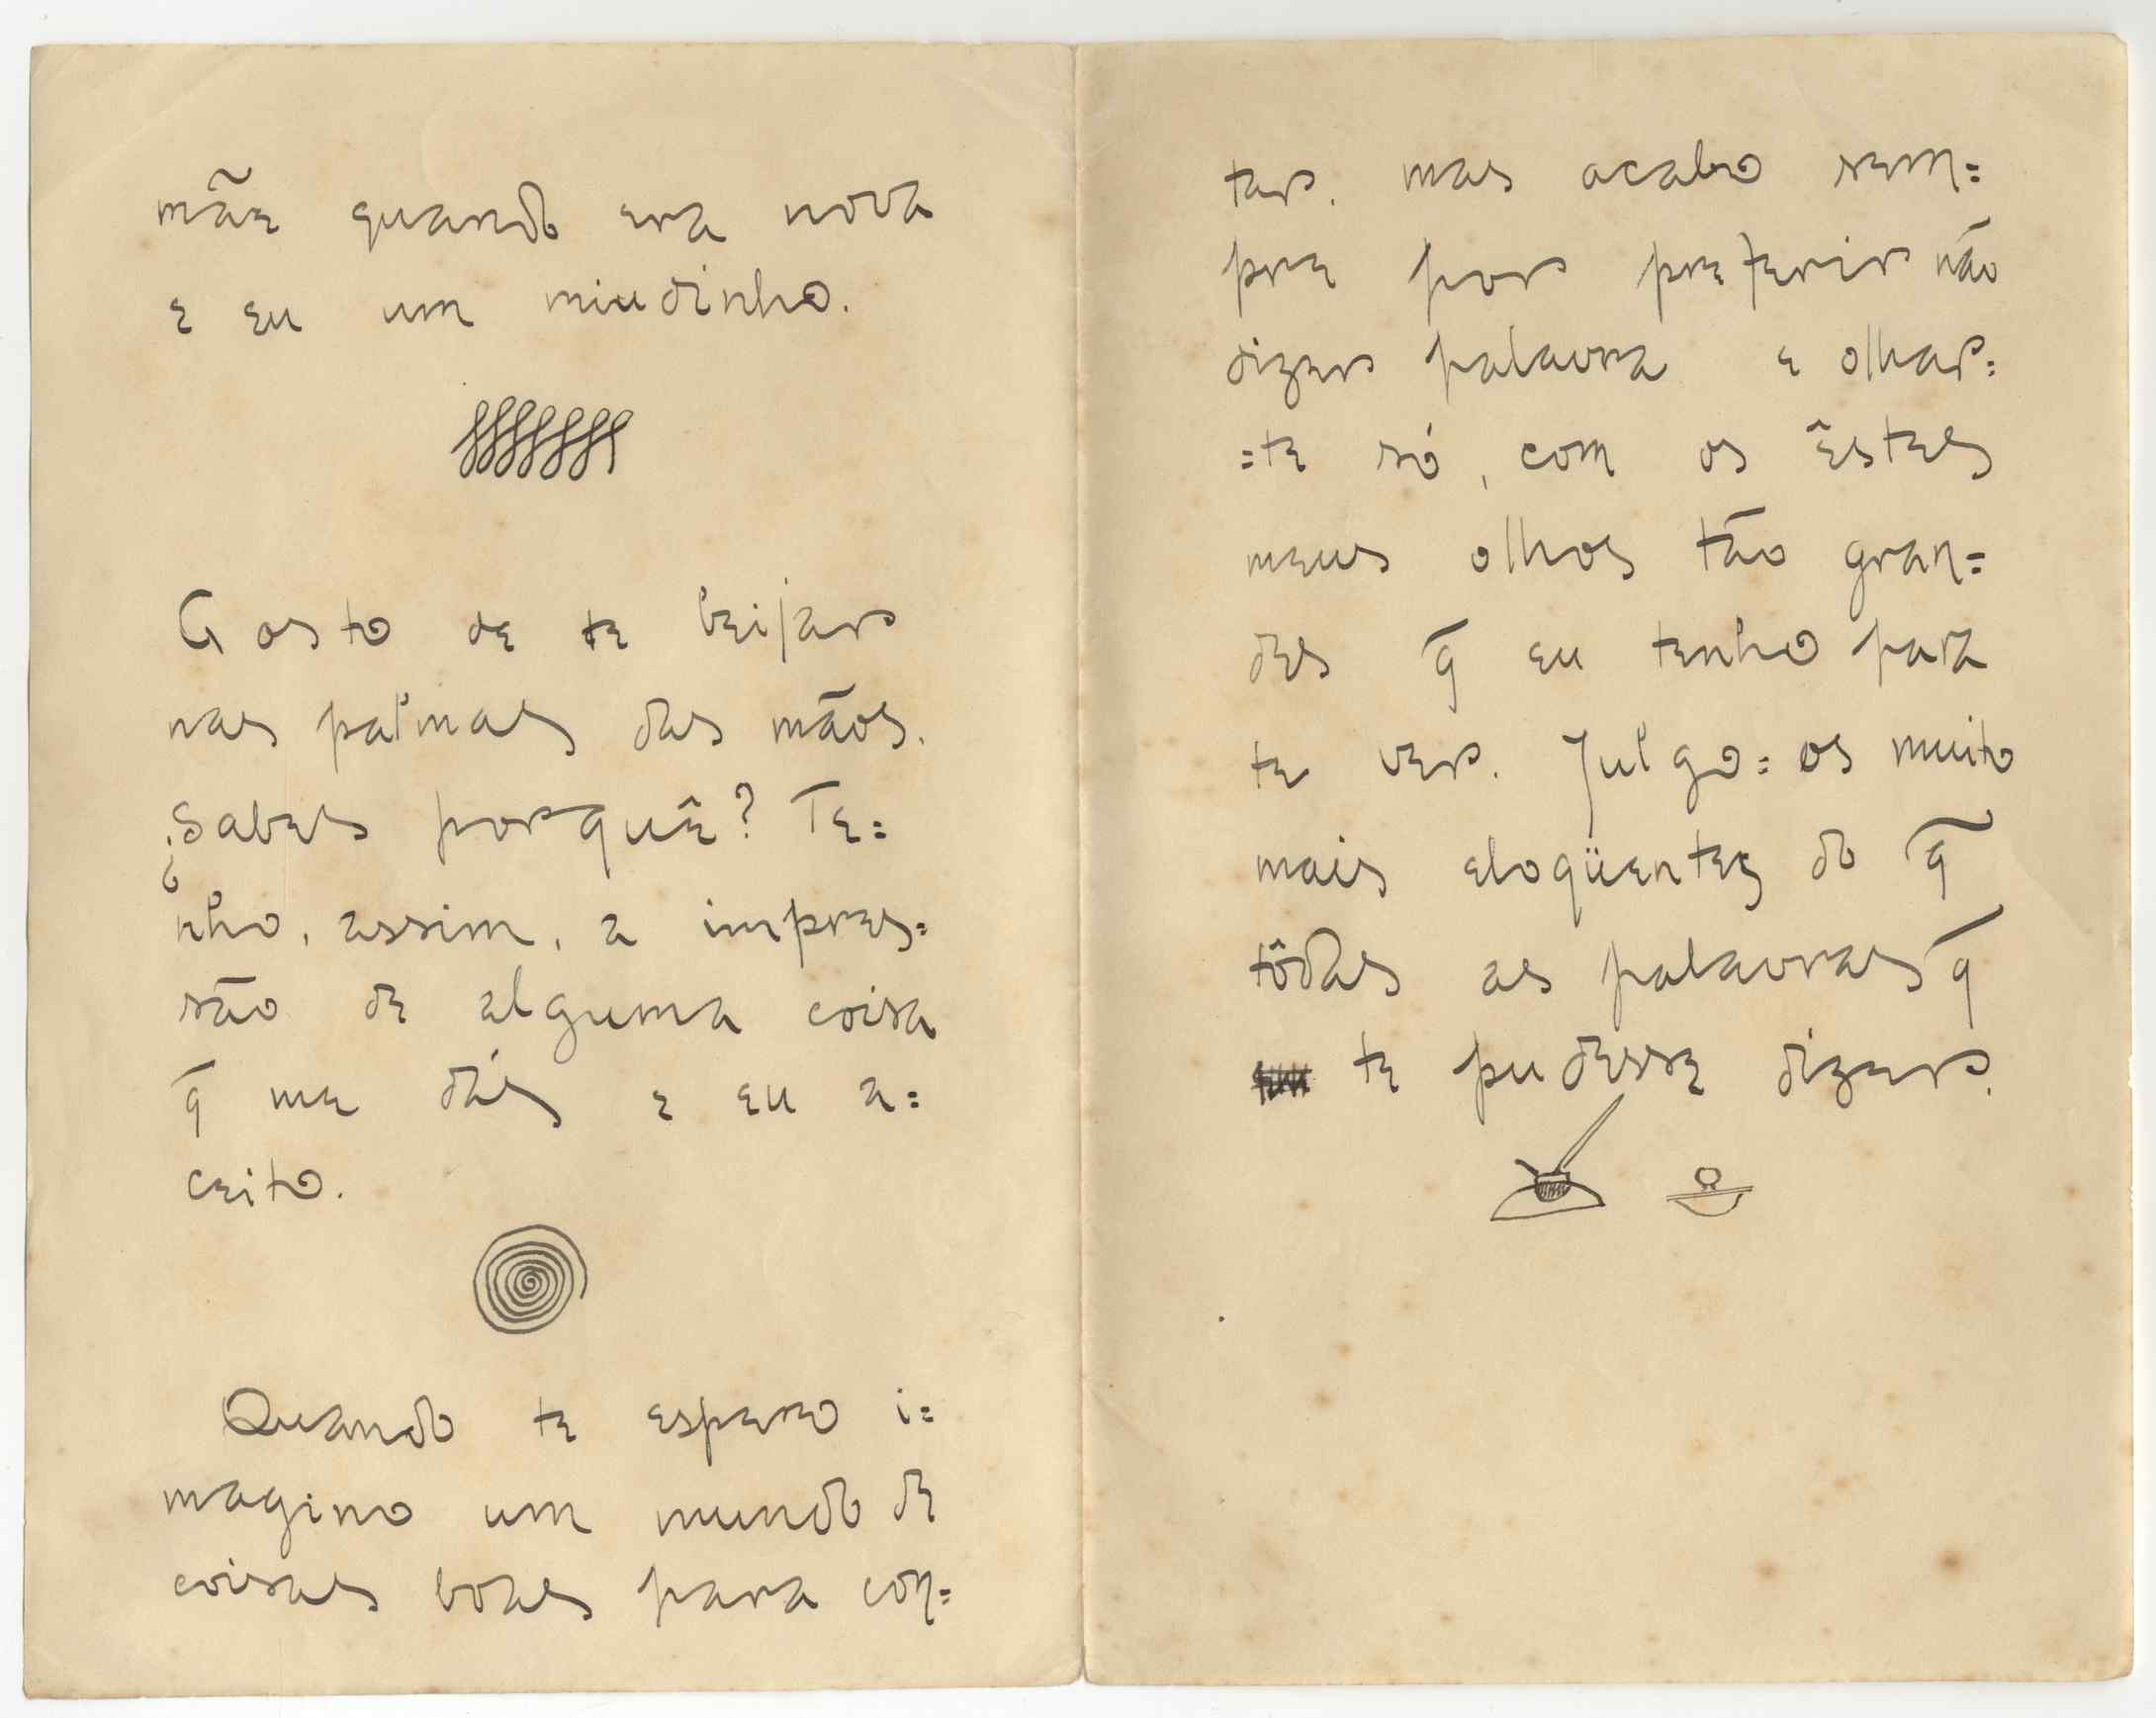 mãe quando era nova
e eu um miudinho.
Gosto de te beijar
nas palmas das mãos.
¿Sabes porquê? Te=
nho, assim, a impres=
são de alguma coisa
q̃ me dás e eu a=
ceito.
Quando te espero i=
magino um mundo de
coisas boas para con=
tar. mas acabo sem=
pre por preferir não
dizer palavra e olhar=
=te só, com os êstes
meus olhos tão gran=
des q̃ eu tenho para
te ver. Julgo=os muito
mais eloqüentes do q̃
tôdas as palavras q̃
te pudesse dizer.